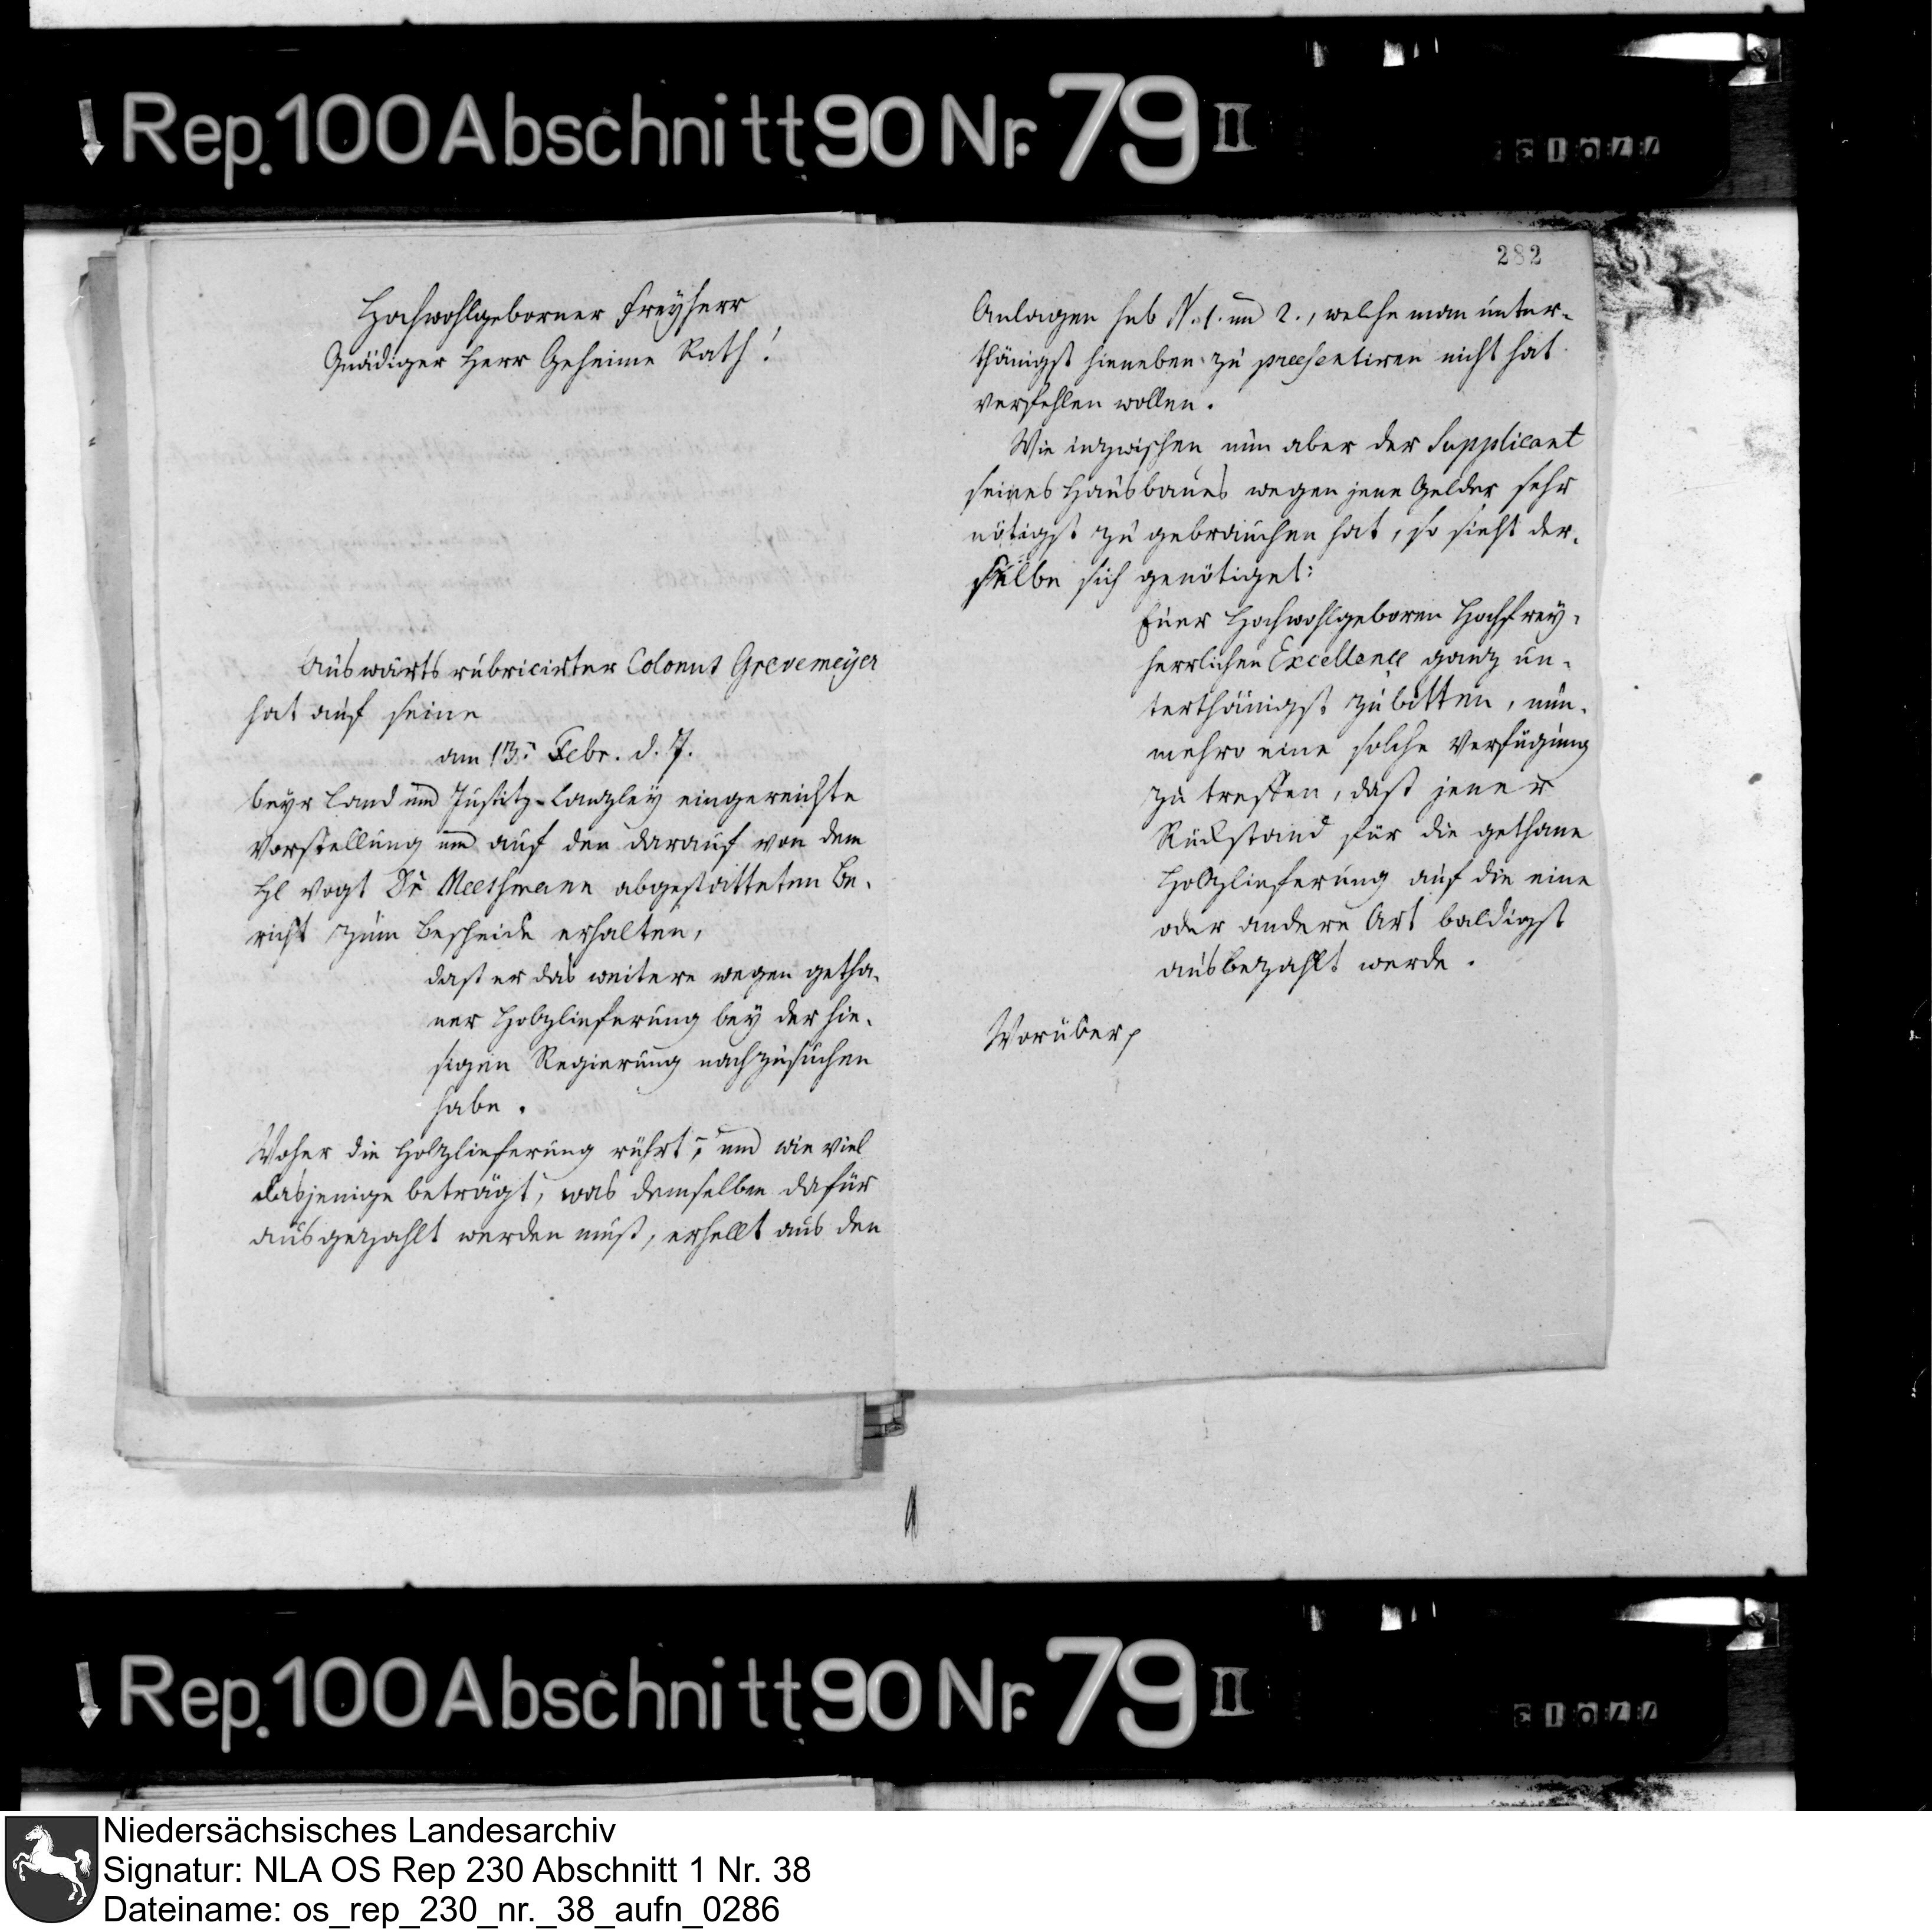 Rep. 100 Abschnitt 90 Nr. 79 II
Hochwohlgeborner Freyherr
Gnädiger Herr Geheime Rath!
Auswärts rubricirter Colonus Grevemeÿer
hat auf seine
am 13ⁿ Febr. d. J.
beyr Land und Justitz-Canzleÿ eingereichte
Vorstellung und auf den darauf von dem
Hl Vogt Dr Meeshmann abgestatteten Be-
richt zum Bescheide erhalten,
dast er das weitere wegen getha-
ner Holzlieferung beÿ der hie-
sigen Regierung nachzusuchen
habe.
Woher die Holzlieferung rührt, und wie viel
dasjenige beträgt, was demselben dafür
ausgezahlt werden muß, erhellt aus den
282
Anlagen sub N. 1. und 2., welche man unter-
thänigst hieneben zu praesentiren nicht hat
verfehlen wollen.
Wie inzwischen nun aber der Supplicant
seines Hausbaues wegen jene Gelder sehr
nötigst zu gebrauchen hat, so sieht der-
selbe sich genötiget:
Euer Hochwohlgeboren Hochfrey-
herrlichen Excellence ganz un-
terthänigst zu bitten, nun-
mehro eine solche Verfügung
zu treffen, dast jener
Rückstand für die gethane
Holzlieferung auf die eine
oder andere Art baldigst
ausbezahlt werde.
Worüber
Rep. 100 Abschnitt 90 Nr. 79 II
Niedersächsisches Landesarchiv
Signatur: NLA OS Rep 230 Abschnitt 1 Nr. 38
Dateiname: os_rep_230_nr._38_aufn_0286